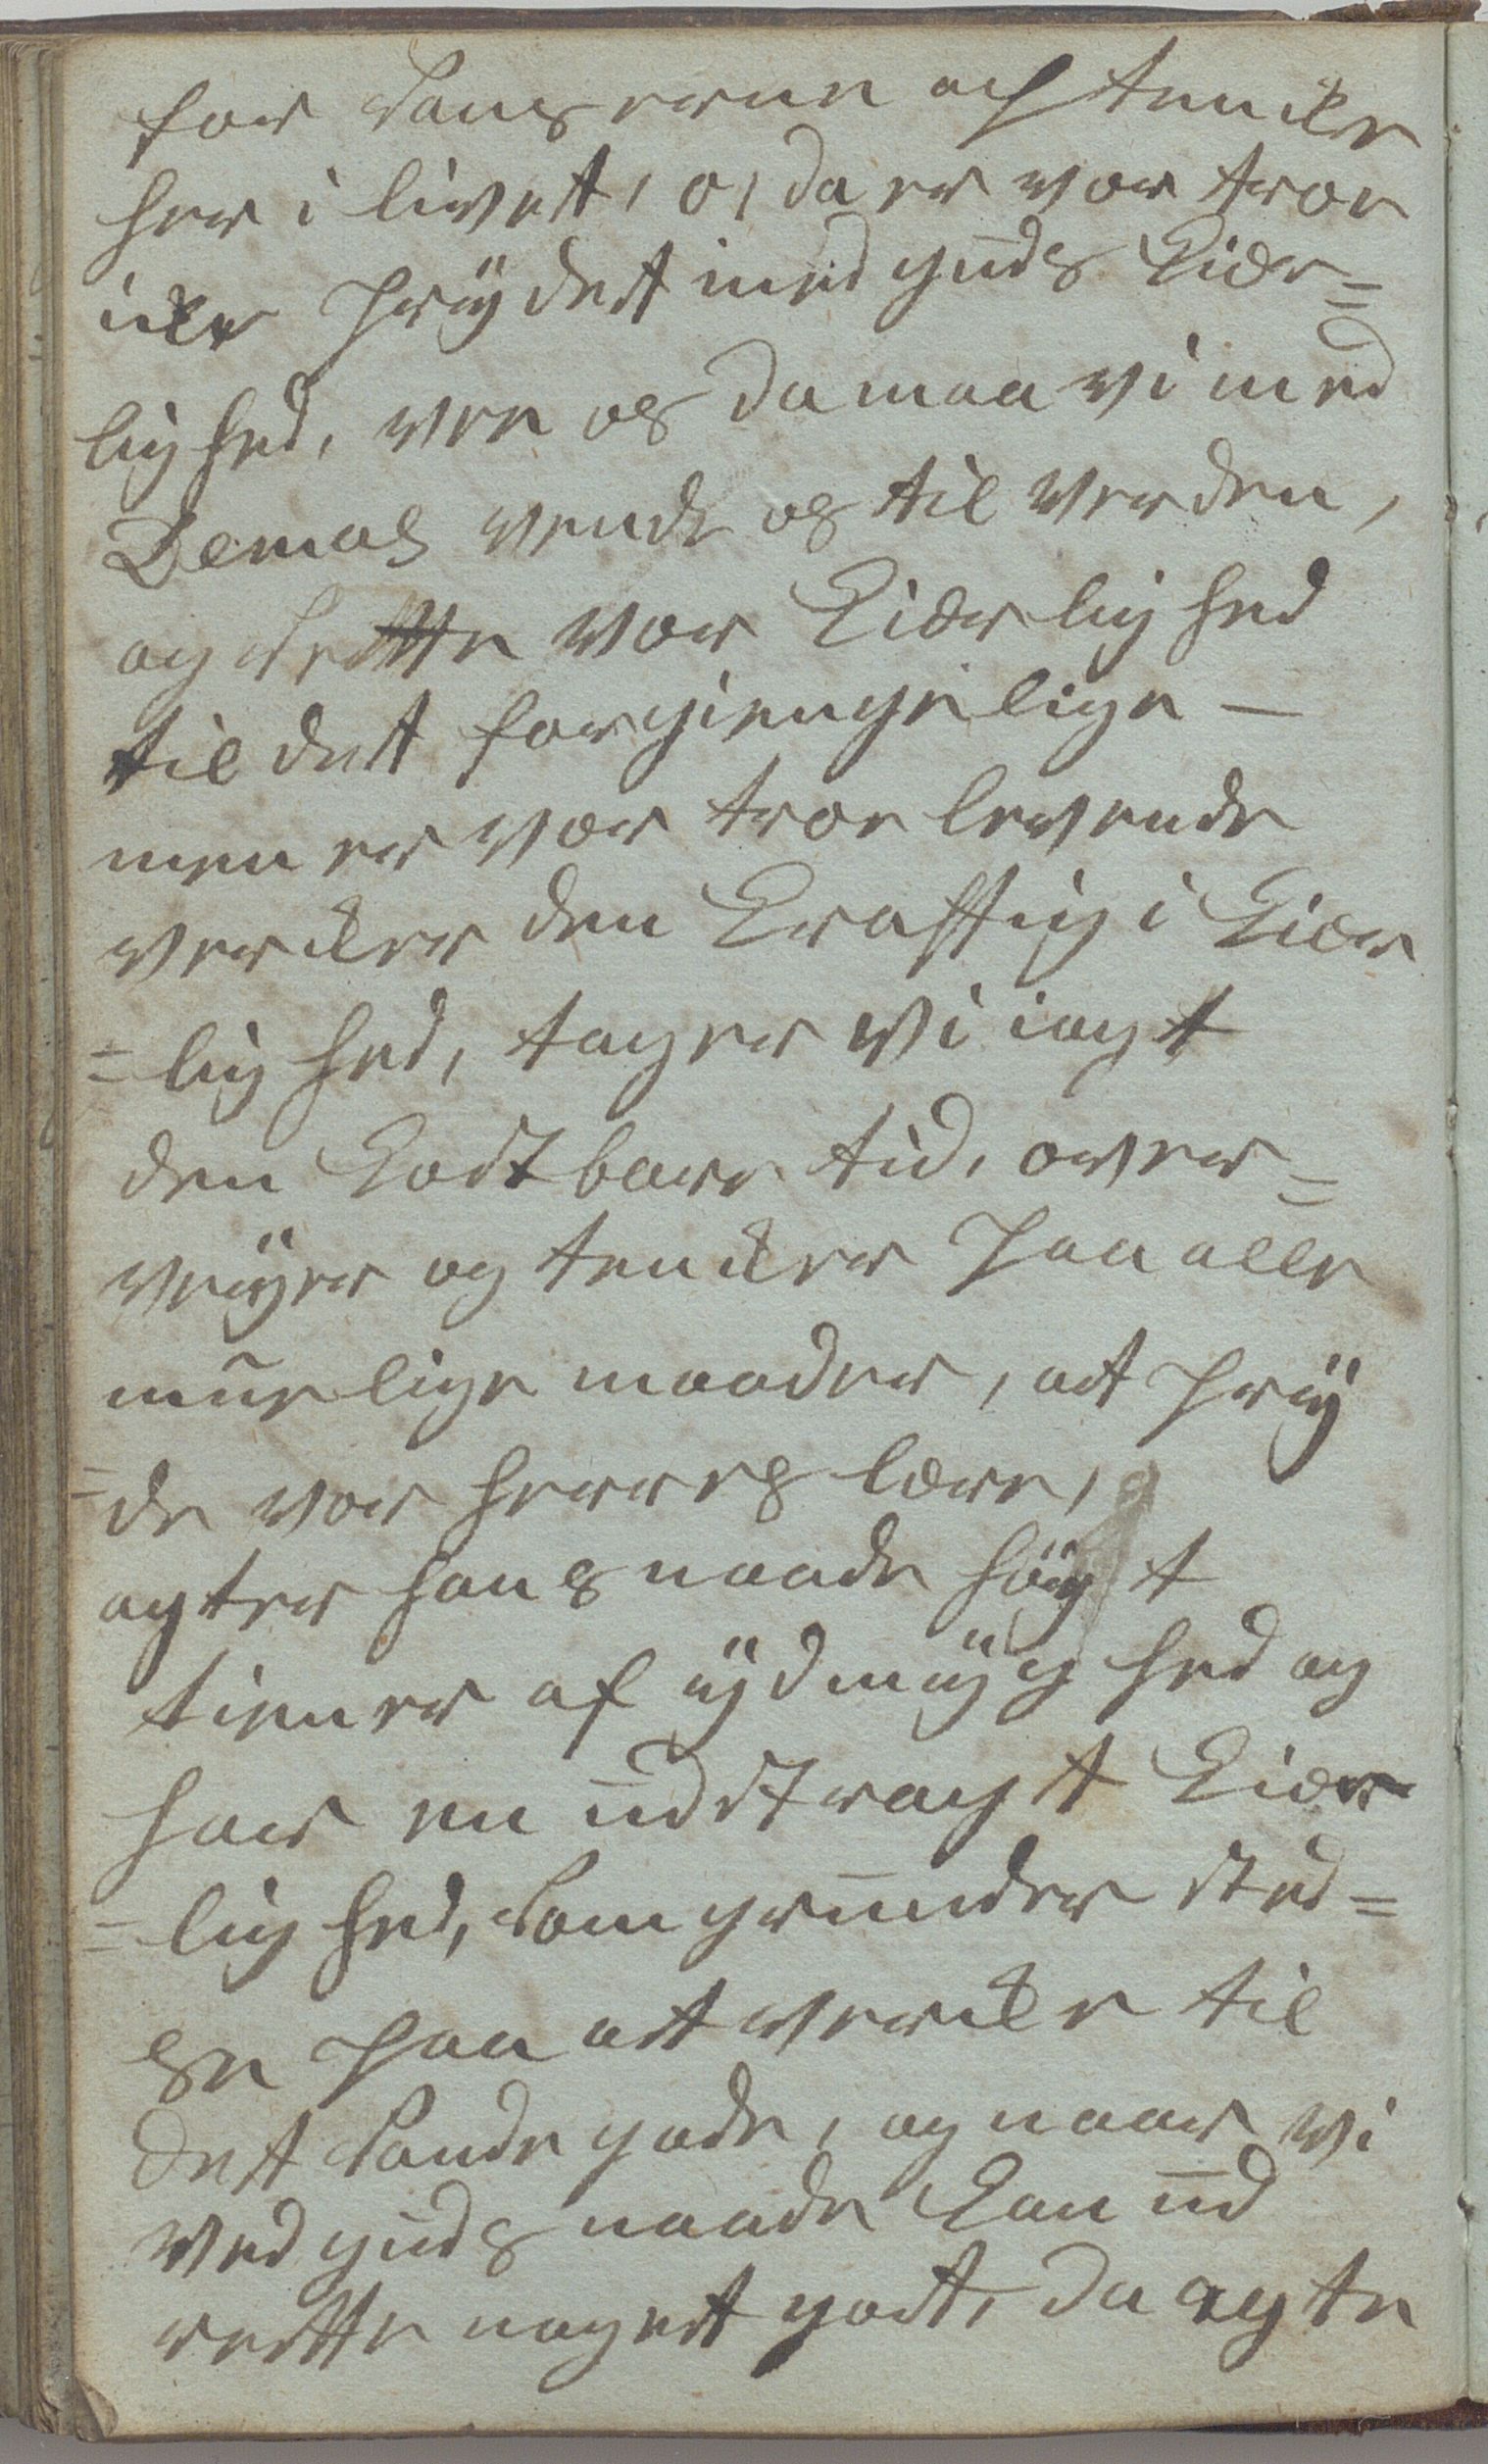 for Sanserne och tencke
her i livett, o, da er vor troe
icke prÿdett med guds Kiær=
lighed, vee os da maa vi med
Demas vende os til verden,
og sette vor Kiærlighed
til dett forgiengelige —
men er vor troe levende
vercker den Kraftig i Kiær
=lighed, tager vi iagt
den Kostbare tid, over=
veÿer og tencker paa alle
muelige maader, at prÿ
=de vor herres lære,
agter hans naade høÿt
tiener af ÿdmÿghed og
har en udstragt Kiær
=lighed, som grunder sted=
se paa att vercke til
dett sande gode, og naar vi
ved guds naade Kan ud
rette nogett godt, da agte